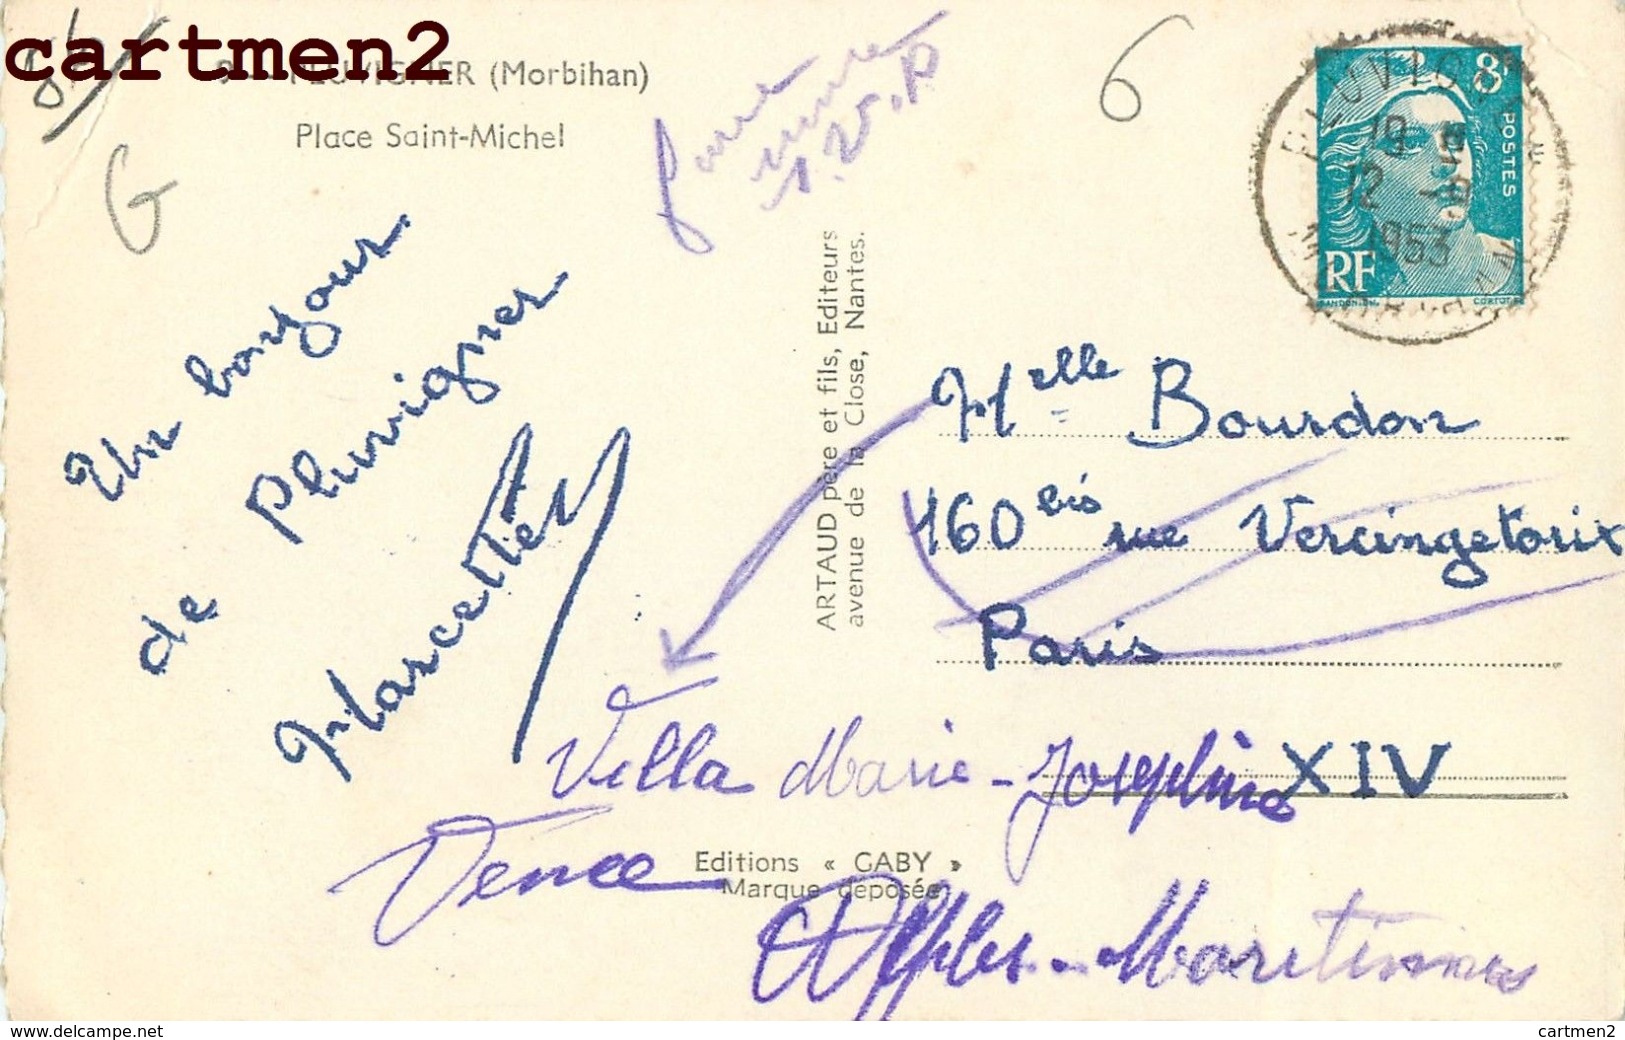 cartmen2
PLUVIGNER (Morbihan)
Place Saint-Michel
6
G
8F
POSTES
RF
GANDON.DEL.
CORTOT SC.
PLUVIGNER
19
12 -8
1953
MORBIHAN
Un bonjour
de Pluvigner
Marcette
ARTAUD père et fils, Editeurs
avenue de la Close, Nantes.
Melle Bourdon
160 bis rue Vercingetorix
Paris
XIV
Villa Marie-Josephine
Vence
Alpes-Maritimes
Editions « GABY »
Marque déposée
www.delcampe.net
cartmen2